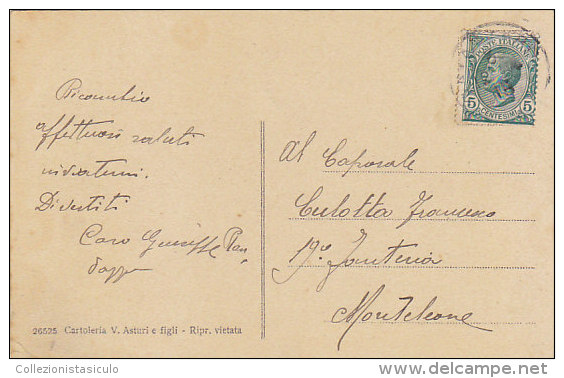 Ricambio
affettuosi saluti
inviatimi.
Divertiti
Caro Giuseppe
Al Caporale
Culotta Francesco
19° Fanteria
Monteleone
POSTE ITALIANE
5 CENTESIMI 5
26525 Cartoleria V. Asturi e figli - Ripr. vietata
Collezionistasiculo
delcampe.net